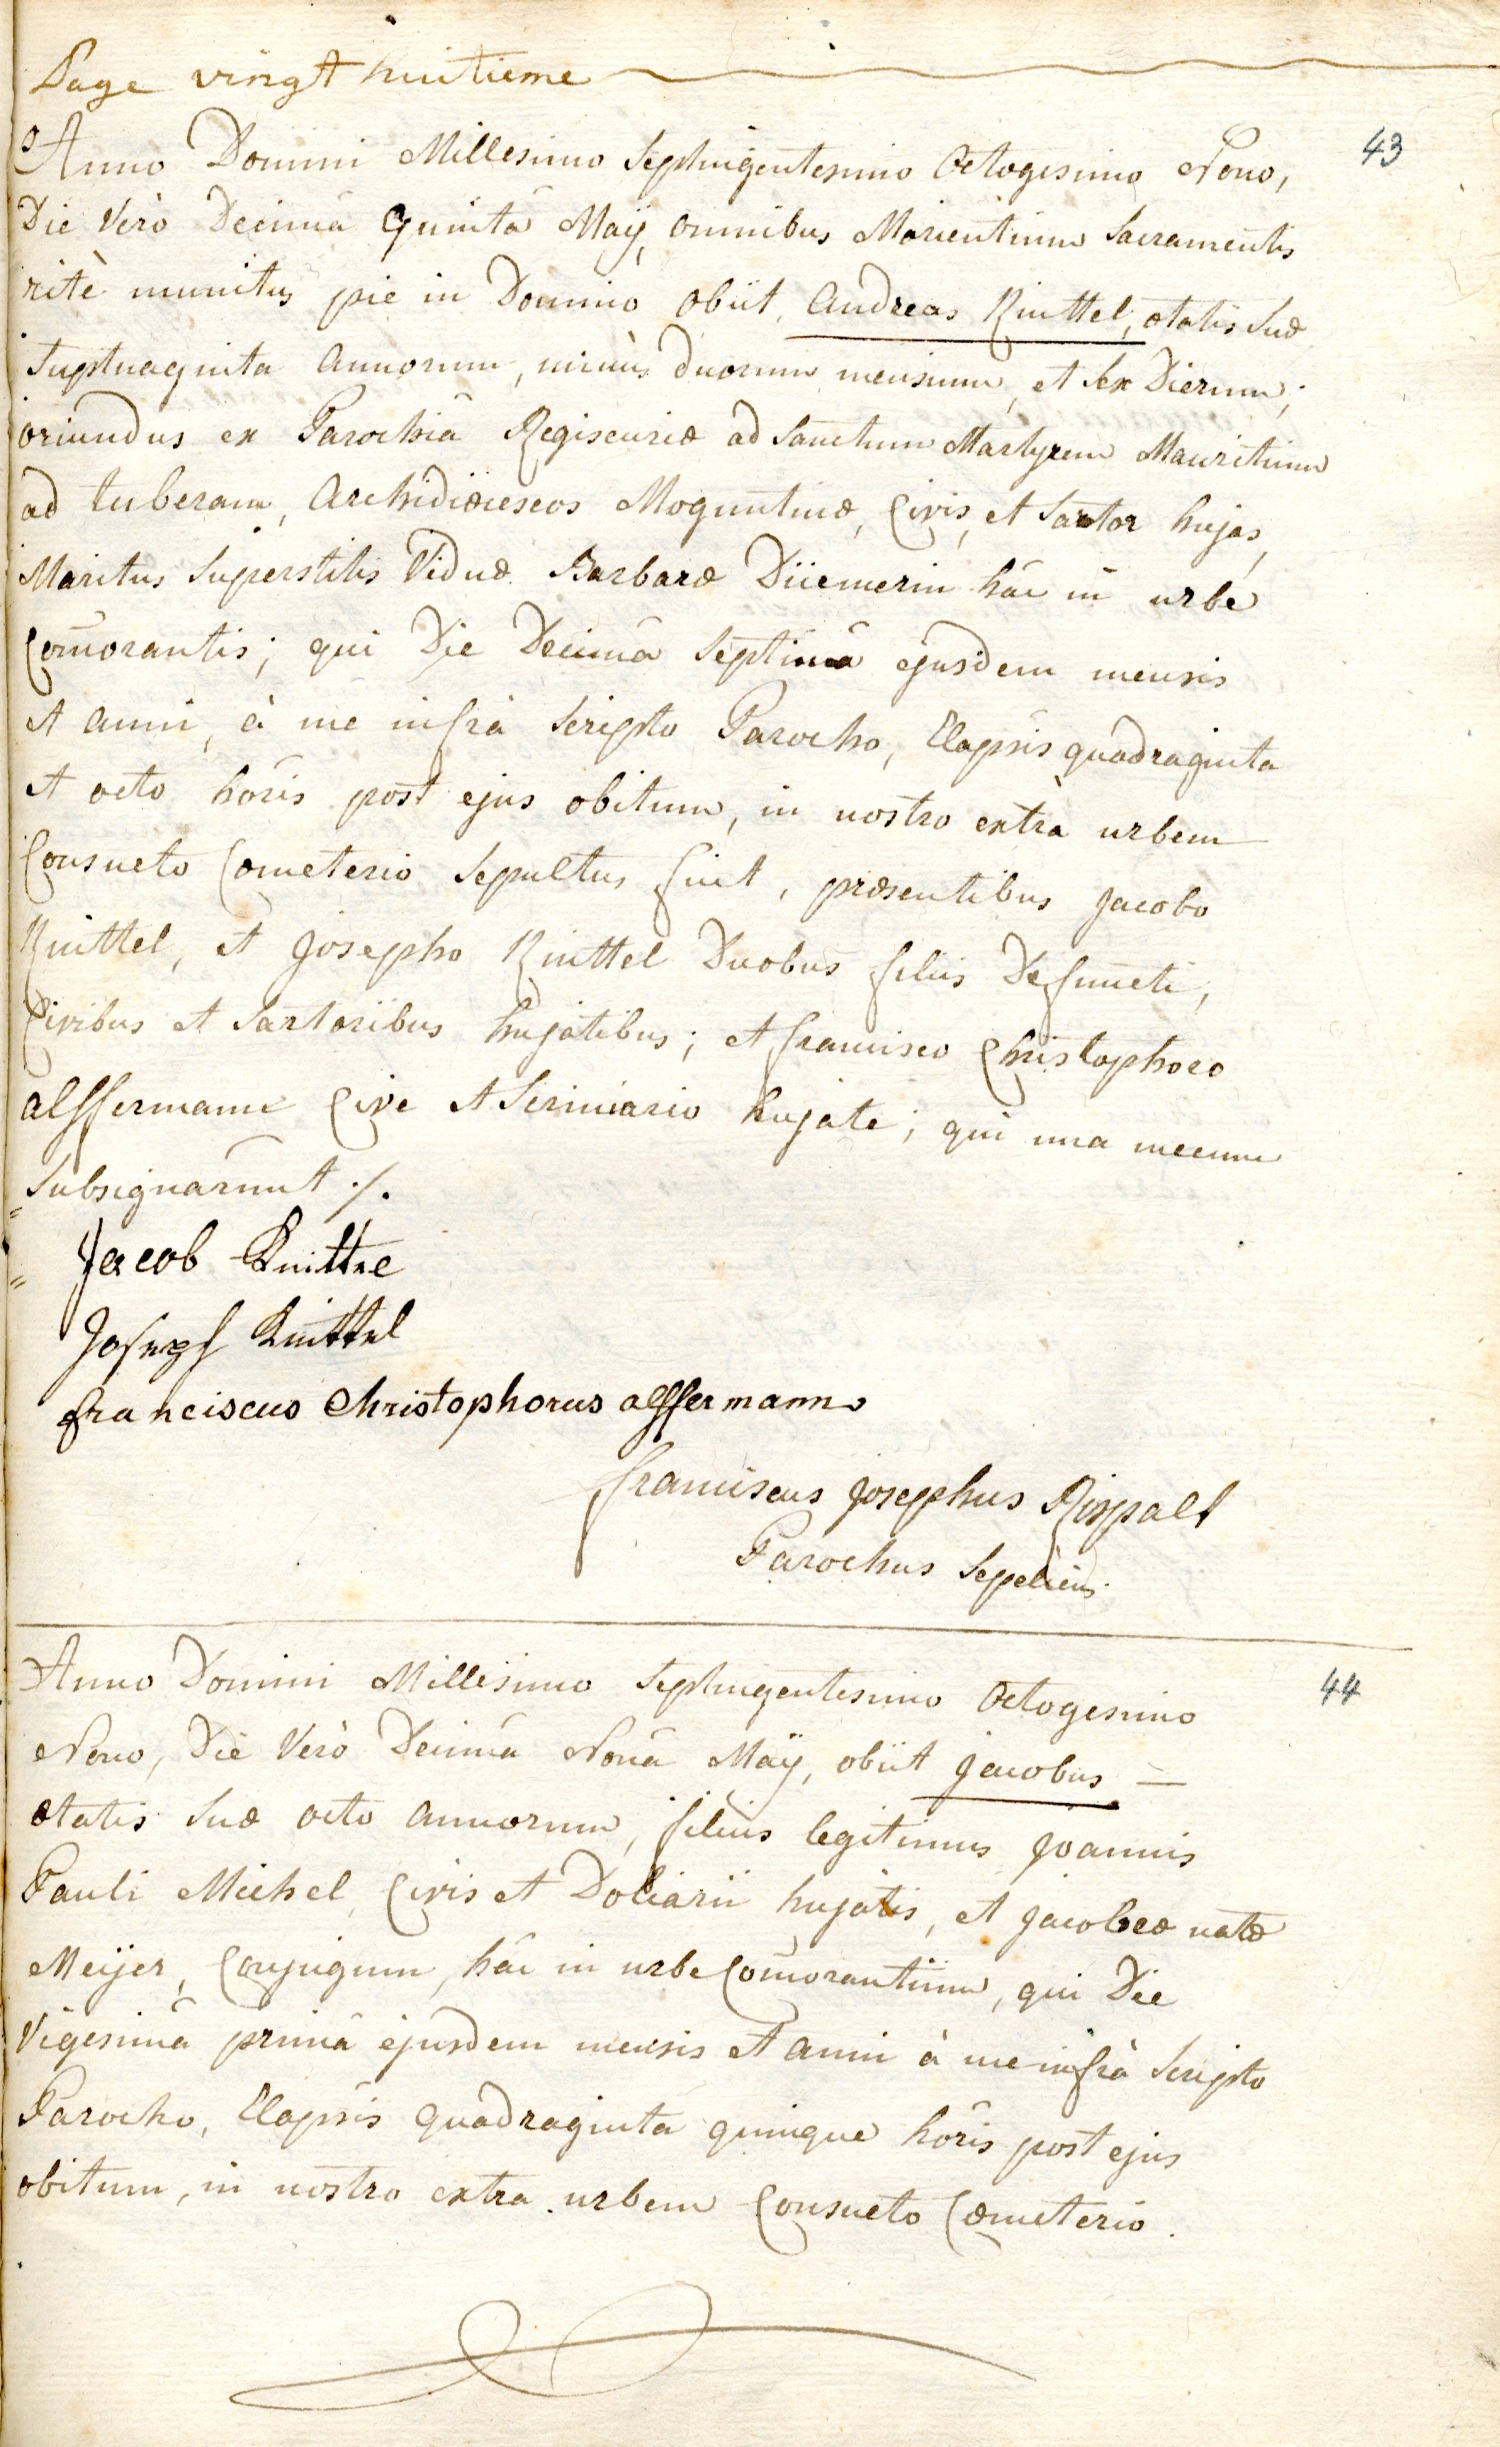 Page vingt huitieme
43
Anno Domini Millesimo Septingentesimo Octogesimo Nono,
Die Verò Decimâ Quintâ Maÿ, omnibus Morientium Sacramentis
ritè munitus pie in Domino obiit, Andreas Knittel, ætatis Suæ
Suptuaginta annorum, minùs duorum mensium, et Sex Dierum;
oriundus ex Parochiâ Regiscuriæ ad Sanctum Martyrem Mauritium
ad tuberam, Archidiœceseos Moguntinæ, Civis, et Sartor hujas,
Maritus Superstitis Viduæ Barbaræ Düemerin hâc in urbe
Com̄orantis; qui Die Decimâ Septimâ ejusdem mensis
et anni, à me infrà Scripto Parocho, Elapsis quadraginta
et octo horis post ejus obitum, in nostro extrà urbem
Consueto Cœmeterio Sepultus fuit, præsentibus Jacobo
Knittel, et Josepho Knittel Duobus filiis Defuncti,
Civibus et Sartoribus hujatibus; et francisco Christophoro
alffermann Cive et Scriniario hujate; qui una mecum
Subsignarunt ./.
Jacob Knittel
Joseph Knittel
franciscus Christophorus alffermann
franciscus Josephus Rispalt
Parochus Sepeliens.
44
Anno Domini Millesimo Septingentesimo Octogesimo
Nono, Die Verò Decimâ Nonâ Maÿ, obiit Jacobus —
ætatis Suæ octo annorum, filius legitimus Joannis
Pauli Michel, Civis et Doliarii hujatis, et Jacobeæ natæ
Meijer, Conjugum, hâc in urbe Com̄orantium, qui Die
Vigesimâ primâ ejusdem mensis et anni à me infrà Scripto
Parocho, Elapsis quadraginta quinque horis post ejus
obitum, in nostro extra urbem Consueto Cœmeterio.